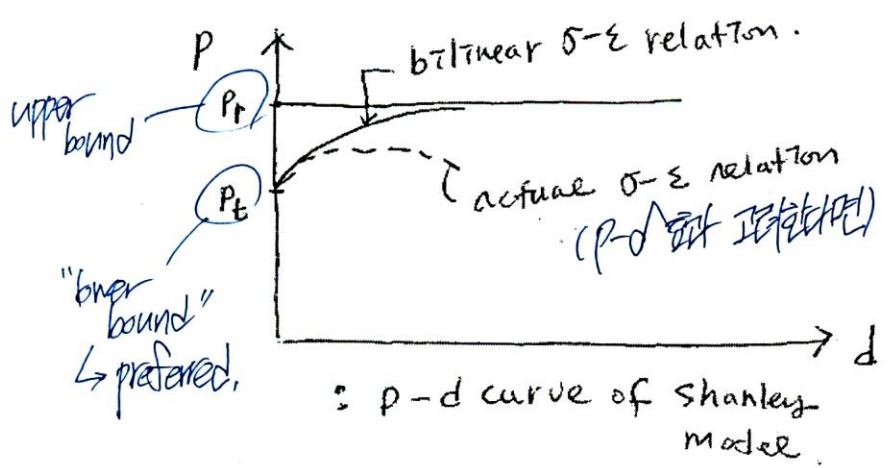 P
bilinear σ-ε relation.
upper
bound
Pr
Pt
actual σ-ε relation
(P-d 효과 고려한다면)
"lower
bound"
↳ preferred.
d
: p-d curve of Shanley
model.